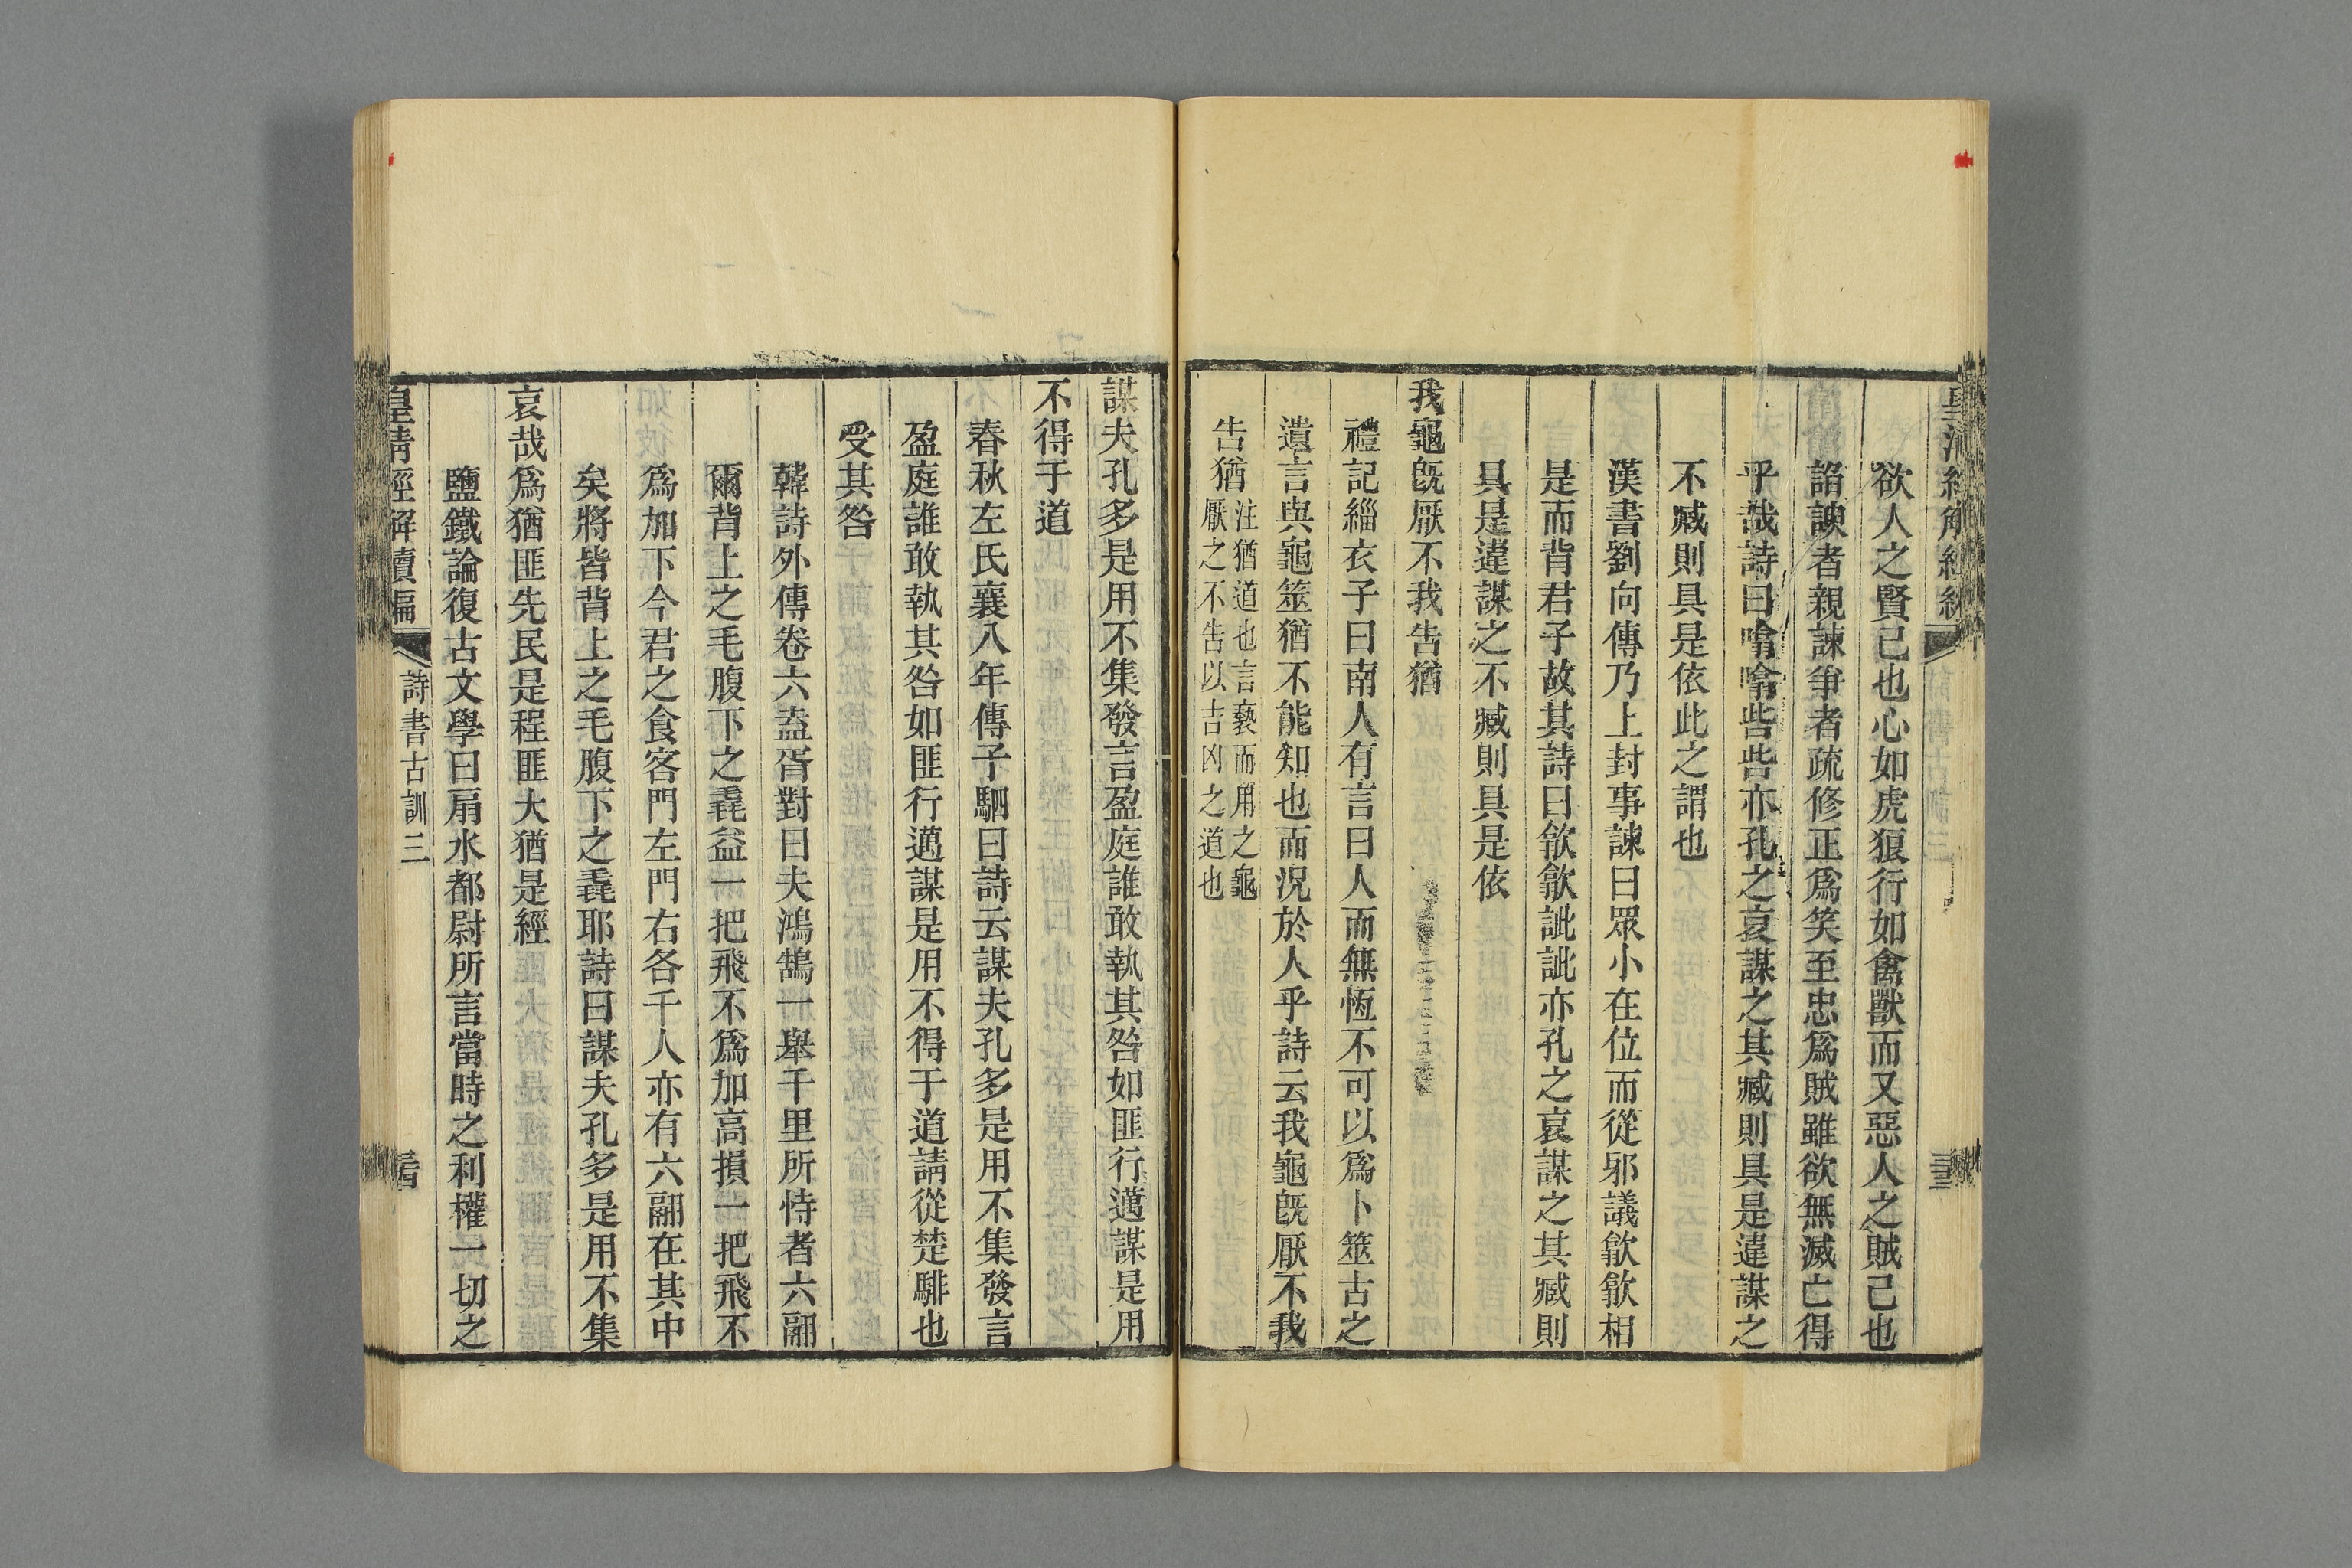 欲人之賢己也心如虎狼行如禽獸而又惡人之賊己也
諂諛者親諫爭者疏修正爲笑至忠爲賊雖欲無滅亡得
乎哉詩曰噏噏呰呰亦孔之哀謀之其臧則具是違謀之
不臧則具是依此之謂也
漢書劉向傳乃上封事諫曰眾小在位而從邪議歙歙相
是而背君子故其詩曰歙歙訿訿亦孔之哀謀之其臧則
具是違謀之不臧則具是依
我龜旣厭不我告猶
禮記緇衣子曰南人有言曰人而無恆不可以爲卜筮古之
遺言與龜筮猶不能知也而況於人乎詩云我龜旣厭不我
告猶
注猶道也言褻而用之龜
厭之不告以吉凶之道也
謀夫孔多是用不集發言盈庭誰敢執其咎如匪行邁謀是用
不得于道
春秋左氏襄八年傳子駟曰詩云謀夫孔多是用不集發言
盈庭誰敢執其咎如匪行邁謀是用不得于道請從楚騑也
受其咎
韓詩外傳卷六盍胥對曰夫鴻鵠一舉千里所恃者六翮
爾背上之毛腹下之毳益一把飛不爲加高損一把飛不
爲加下今君之食客門左門右各千人亦有六翮在其中
矣將皆背上之毛腹下之毳耶詩曰謀夫孔多是用不集
哀哉爲猶匪先民是程匪大猶是經
鹽鐵論復古文學曰扇水都尉所言當時之利權一切之
皇清經解續編
詩書古訓三